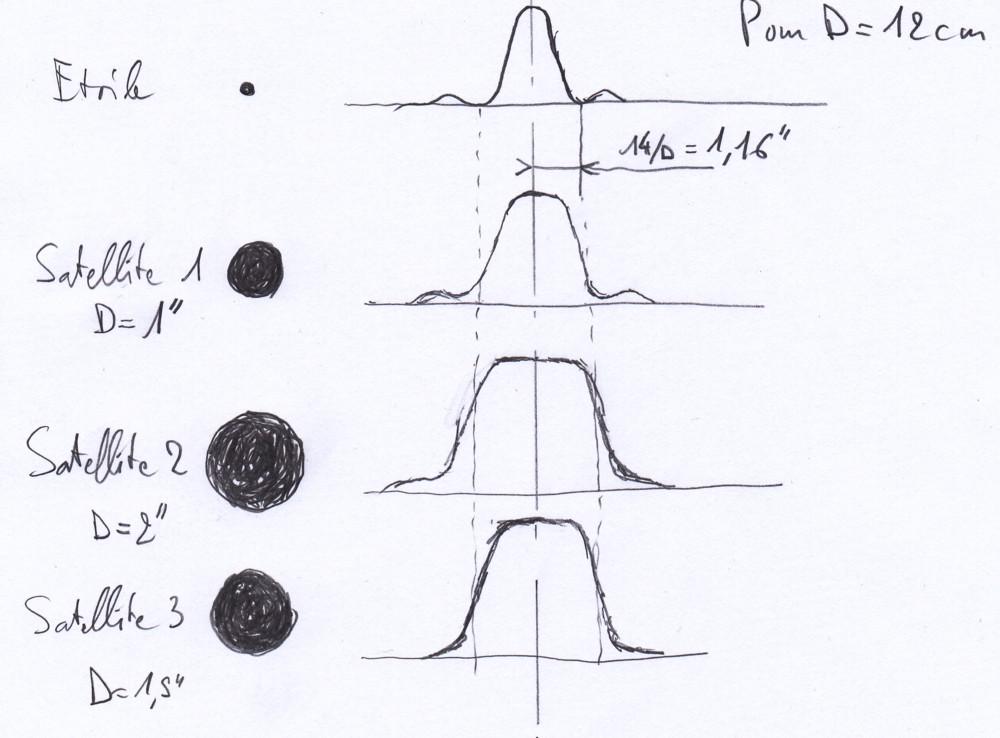 Pour D = 12 cm
Etoile
14/D = 1,16"
Satellite 1
D = 1"
Satellite 2
D = 2"
Satellite 3
D = 1,5"